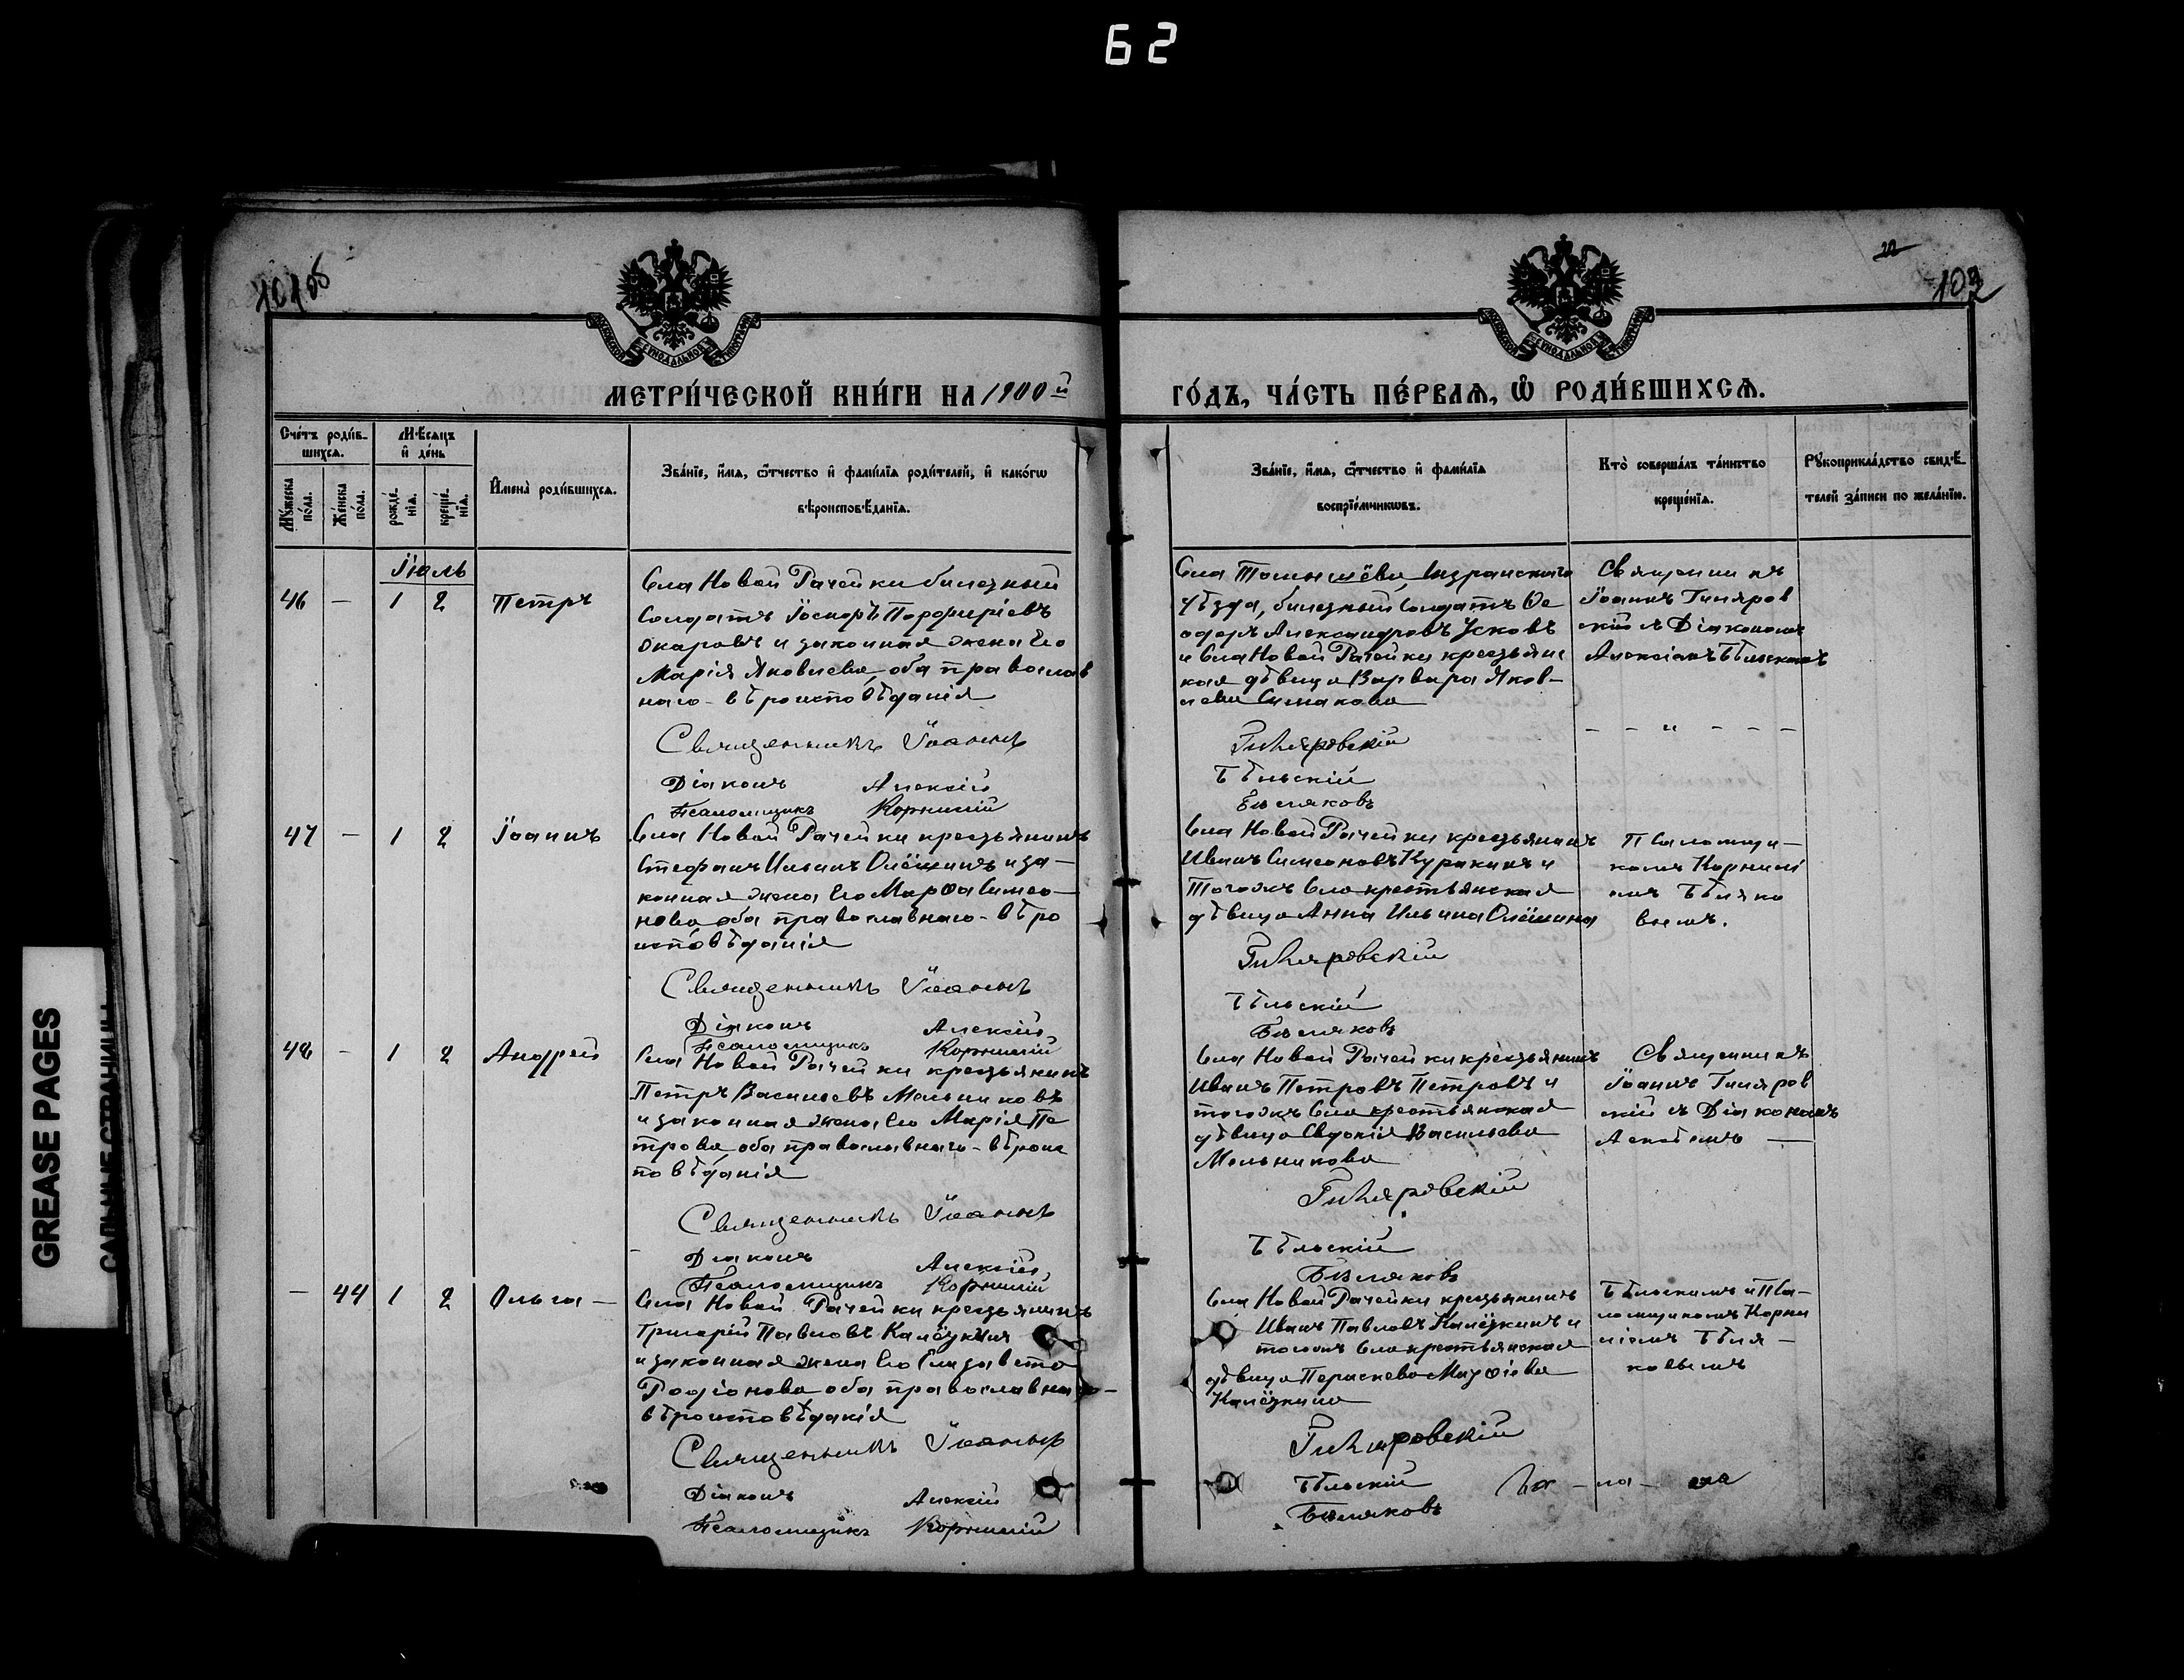 62
102
МЕТРИ́ЧЕСКОЙ КНИ́ГИ НА 1900й
ГО́ДЪ, ЧА́СТЬ ПЕ́РВАѦ, Ѽ РОДИ́ВШИХСѦ.
Сче́тъ роди́в-
шихсѧ.
Мꙋ́жеска по́ла.
Же́нска по́ла.
Мѣсѧцъ
и҆ де́нь
рожде́-
нїѧ.
креще́-
нїѧ.
И҆мена̀ роди́вшихсѧ.
Зва́нїе, и҆́мѧ, ѻ҆́тчество и҆ фами́лїѧ роди́телей, и҆ како́гѡ
вѣроисповѣданїѧ.
Зва́нїе, и҆́мѧ, ѻ҆́тчество и҆ фами́лїѧ
воспрїе́мникѡвъ.
Кто̀ соверша́лъ та́инство
креще́нїѧ.
Рꙋкоприкла́дство свидѣ-
телей за́писи по жела́нїю.
Іюль
46 — 1 2 Петръ
Села Новой Рачейки билетный
Солдатъ Іосифъ Порфиріевъ
и законная жена его
Марія Яковлева, оба православ
наго-вѣроисповѣданія
Священникъ Іоаннъ
Діаконъ Алексій
Псаломщикъ Корнилій
Села Томышёва, Сызранскаго
уѣзда, билетный Солдатъ Ѳе
одоръ Александровъ Усковъ
и Села Новой Рачейки крестьянс
кая дѣвица Варвара Яков-
лева Симакова
Гиляровскій
Бѣльскій
Бѣляковъ
Священникъ
Іоаннъ Гиляров
скій съ Діакономъ
Алексіемъ Бѣльскимъ
– – " – – –
47 — 1 2 Іоаннъ
Села Новой Рачейки крестьянинъ
Стефанъ Ильинъ Олёшинъ и за-
конная жена его Марѳа Симео-
нова оба православнаго-вѣро
исповѣданія
Священникъ Іоаннъ
Діаконъ Алексій
Псаломщикъ Корнилій
Села Новой Рачейки крестьянинъ
Иванъ Симеоновъ Куракинъ и
тогожъ Села крестьянская
дѣвица Анна Ильина Олёшина
Гиляровскій
Бѣльскій
Бѣляковъ
Псаломщи-
комъ Корнилі
емъ Бѣляко
вымъ.
48 — 1 2 Андрей
Села Новой Рачейки крестьянинъ
Петръ Васильевъ Мельниковъ
и законная жена его Марія Пе
трова, оба православнаго-вѣроис
повѣданія
Священникъ Іоаннъ
Діаконъ Алексій
Псаломщикъ Корнилій
Села Новой Рачейки крестьянинъ
Иванъ Петровъ Петровъ и
тогожъ Села крестьянская
дѣвица Евдокія Васильева
Мельникова
Гиляровскій
Бѣльскій
Бѣляковъ
Священникъ
Іоаннъ Гиляров
скій съ Діакономъ
— 44 1 2 Ольга —
Села Новой Рачейки крестьянинъ
Григорій Павловъ Калёзкинъ
и законная жена его Елизавета
Родіонова оба православнаго-
вѣроисповѣданія
Священникъ Іоаннъ
Діаконъ Алексій
Псаломщикъ Корнилій
Села Новой Рачейки крестьянинъ
Иванъ Павловъ Калёзкинъ и
тогожъ Села крестьянская
дѣвица Параскева
Калёзкина
Гиляровскій
Бѣльскій
Бѣляковъ
Бѣльскимъ и Пса-
ломщикомъ Корни
ліемъ Бѣля-
ковымъ
GREASE PAGES
САЛЬНЫЕ СТРАНИЦЫ